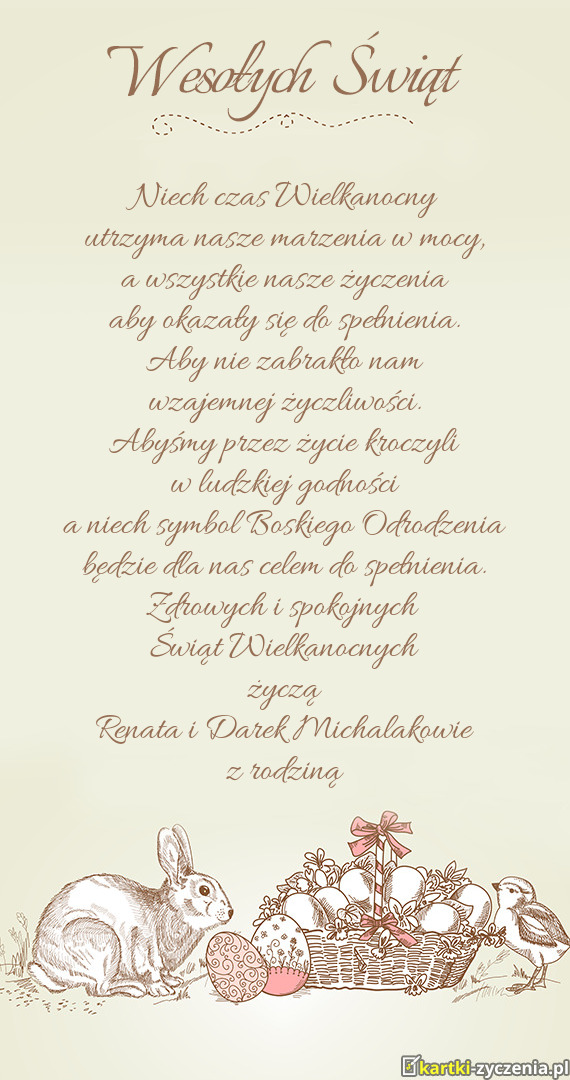 Wesołych Świąt
Niech czas Wielkanocny
utrzyma nasze marzenia w mocy,
a wszystkie nasze życzenia
aby okazały się do spełnienia.
Aby nie zabrakło nam
wzajemnej życzliwości.
Abyśmy przez życie kroczyli
w ludzkiej godności
a niech symbol Boskiego Odrodzenia
będzie dla nas celem do spełnienia.
Zdrowych i spokojnych
Świąt Wielkanocnych
życzą
Renata i Darek Michalakowie
z rodziną
kartki-zyczenia.pl